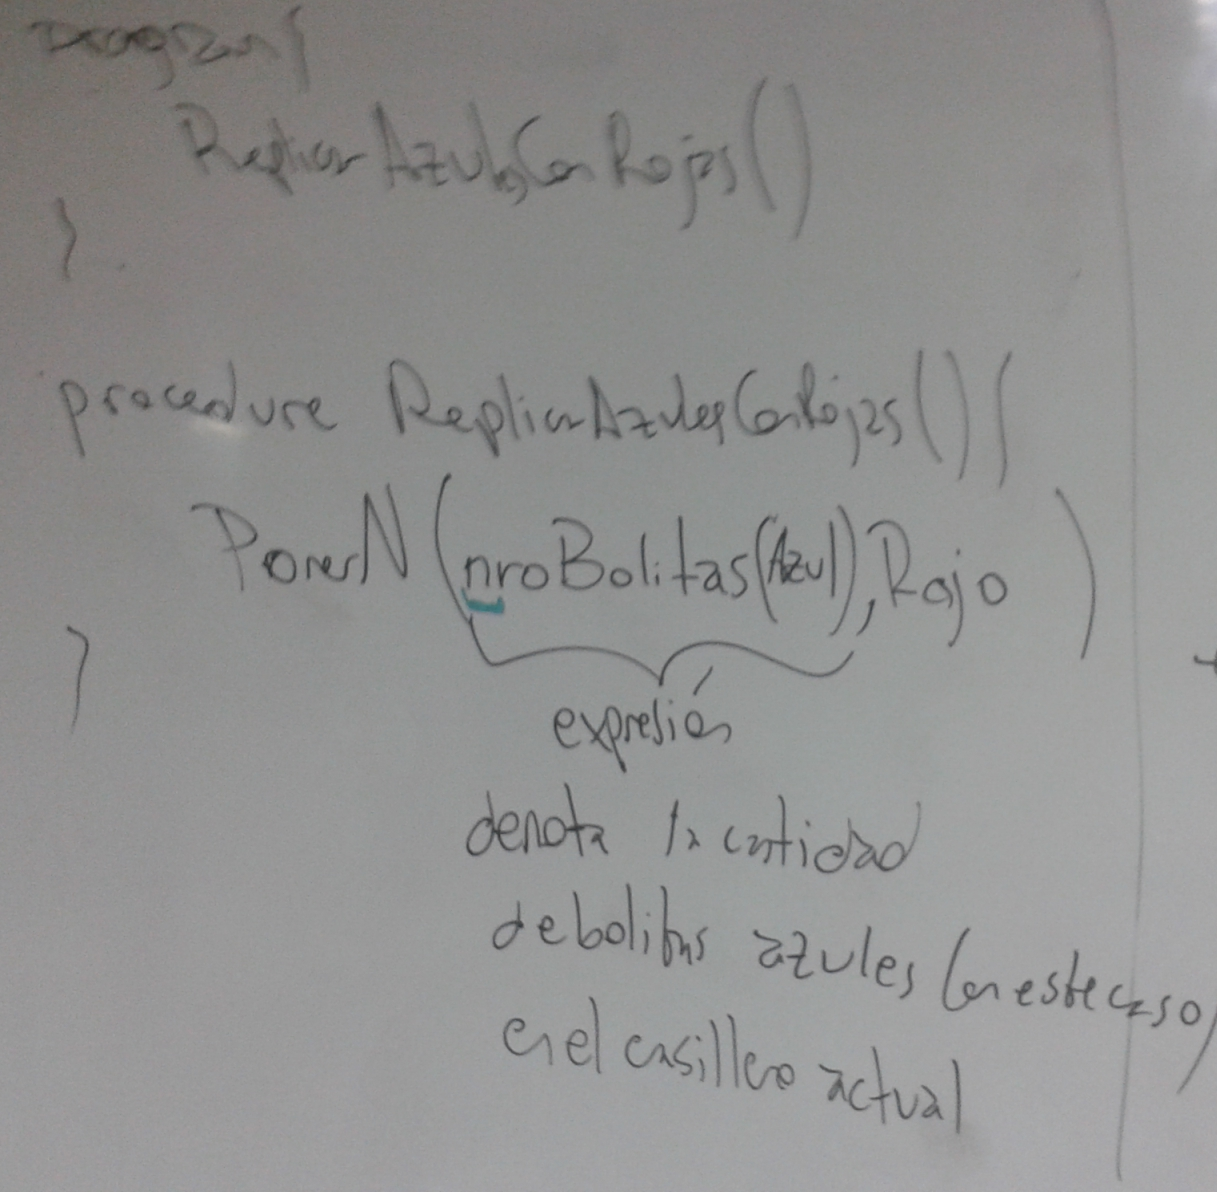 program{
ReplicarAzulesConRojas()
}
procedure ReplicarAzulesConRojas(){
PonerN(nroBolitas(Azul),Rojo)
}
expresión
denota la cantidad
de bolitas azules (en este caso)
en el casillero actual